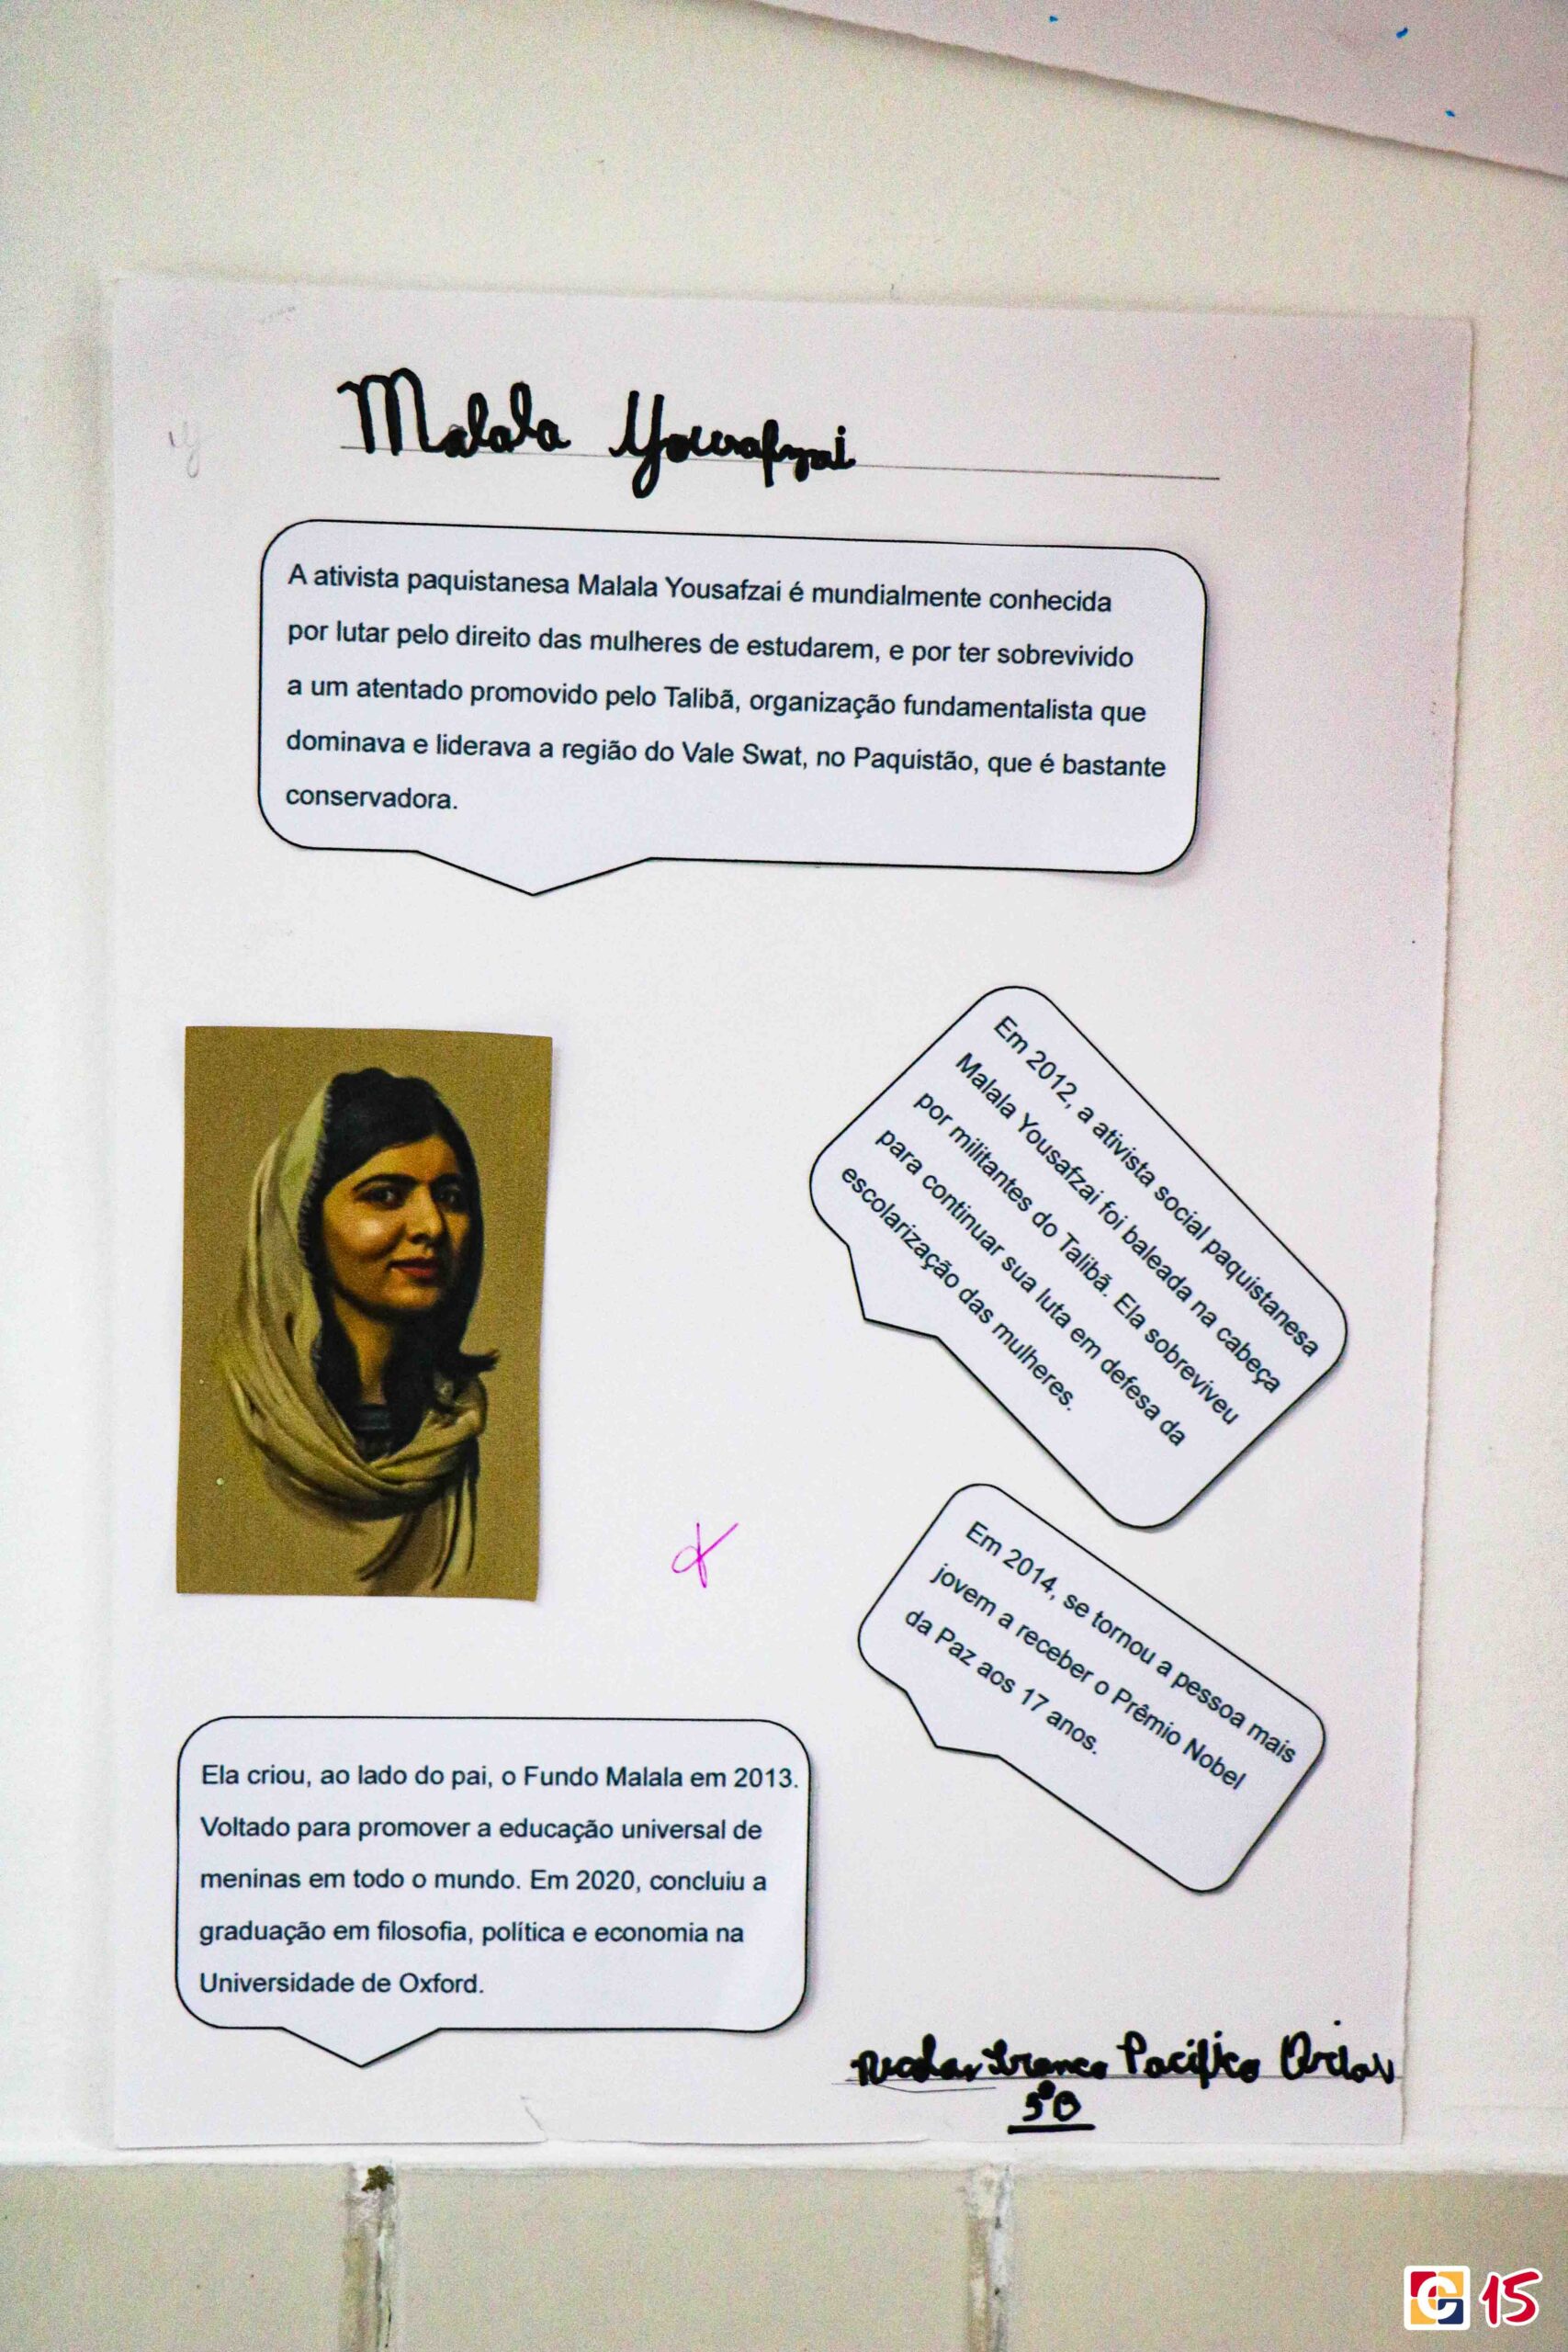 Malala Yousafzai
A ativista paquistanesa Malala Yousafzai é mundialmente conhecida
por lutar pelo direito das mulheres de estudarem, e por ter sobrevivido
a um atentado promovido pelo Talibã, organização fundamentalista que
dominava e liderava a região do Vale Swat, no Paquistão, que é bastante
conservadora.
Em 2012, a ativista social paquistanesa
Malala Yousafzai foi baleada na cabeça
por militantes do Talibã. Ela sobreviveu
para continuar sua luta em defesa da
escolarização das mulheres.
Em 2014, se tornou a pessoa mais
jovem a receber o Prêmio Nobel
da Paz aos 17 anos.
Ela criou, ao lado do pai, o Fundo Malala em 2013.
Voltado para promover a educação universal de
meninas em todo o mundo. Em 2020, concluiu a
graduação em filosofia, política e economia na
Universidade de Oxford.
Pacífico
5ºB
15